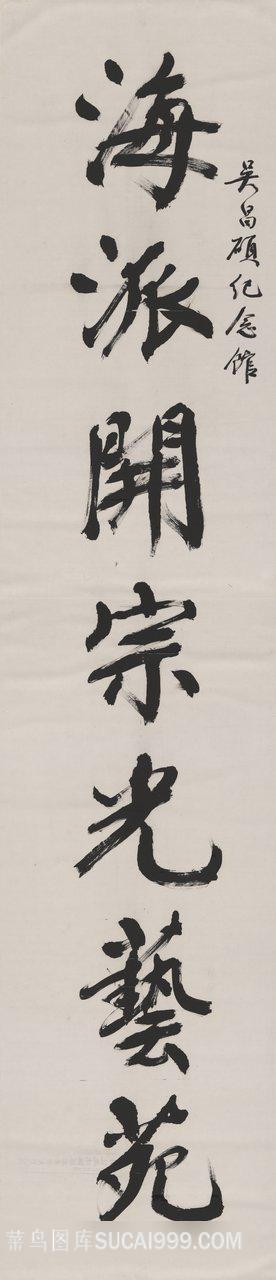 吴昌硕纪念館
海派開宗光藝苑
菜鸟图库SUCAI999.COM